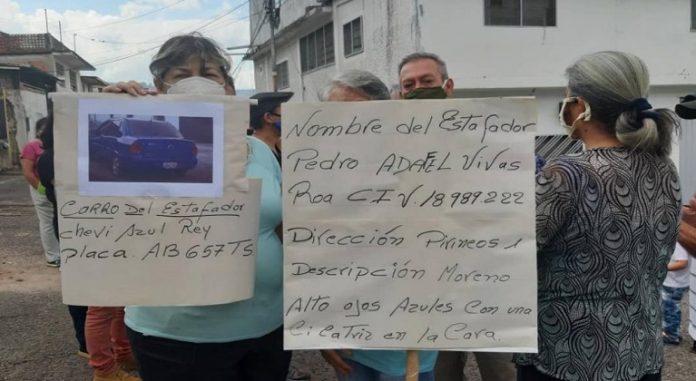 CARRO Del Estafador
chevi Azul Rey
placa. AB657TS
Nombre del Estafador
Pedro ADAEL Vivas
Roa C I V. 18989222
Dirección Pirineos 1
Descripción Moreno
Alto ojos Azules Con una
Cicatriz en la Cara.